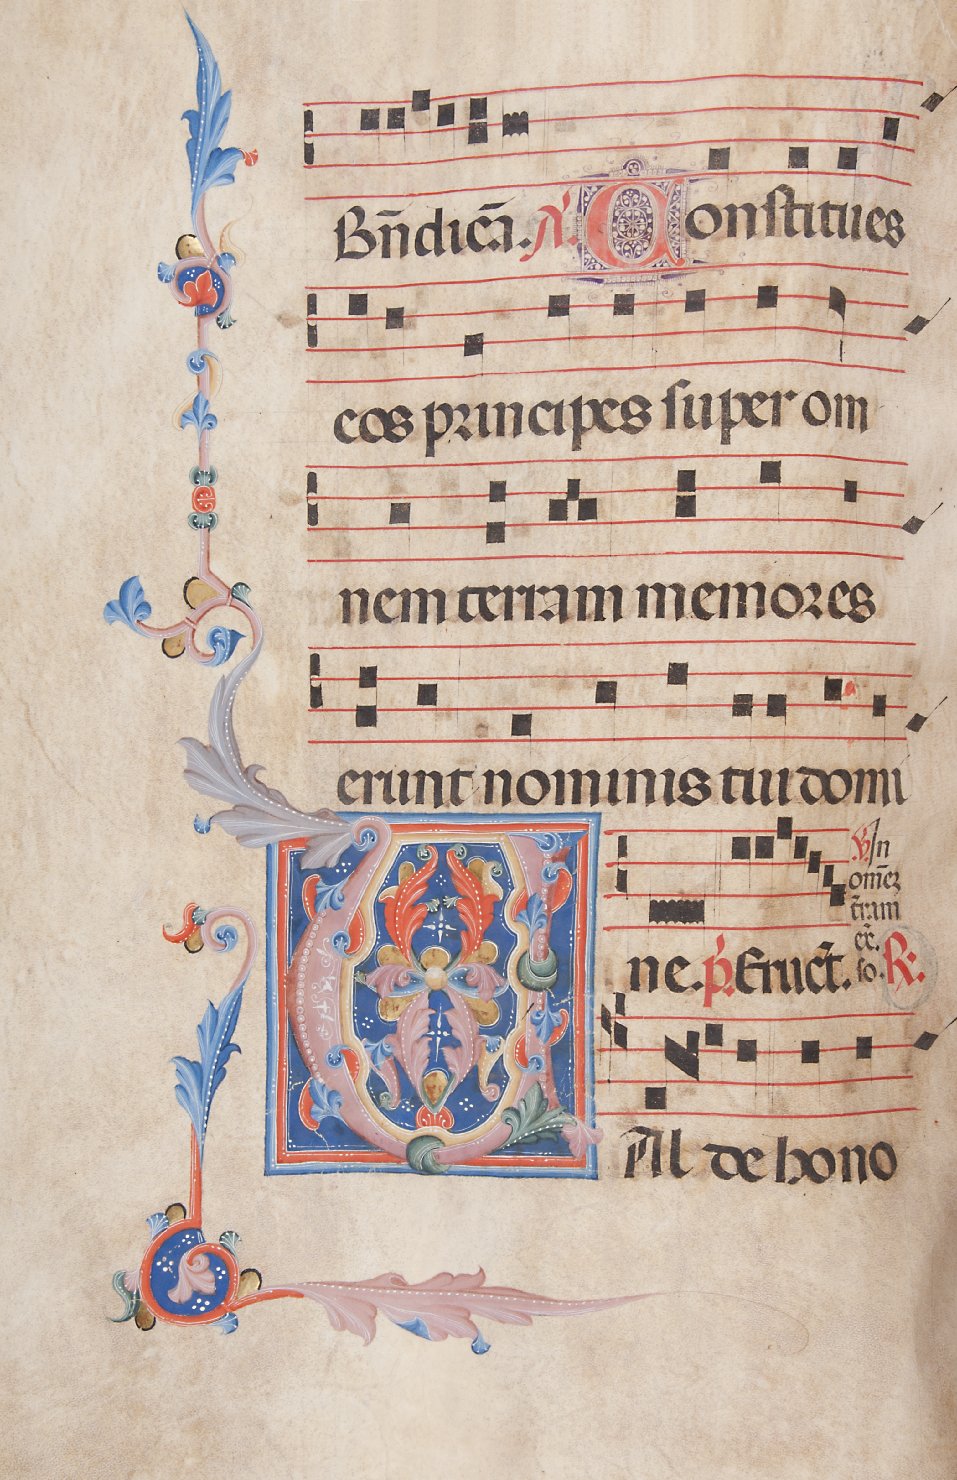 Bn̄dicā. Constitues
eos principes super om
nem terram memores
erunt nominis tui domi
ne. p̄. Eruct̄. ꝟ In
om̄eꝫ
t̄ram
ex̄.
so. ℟.
Al de hono